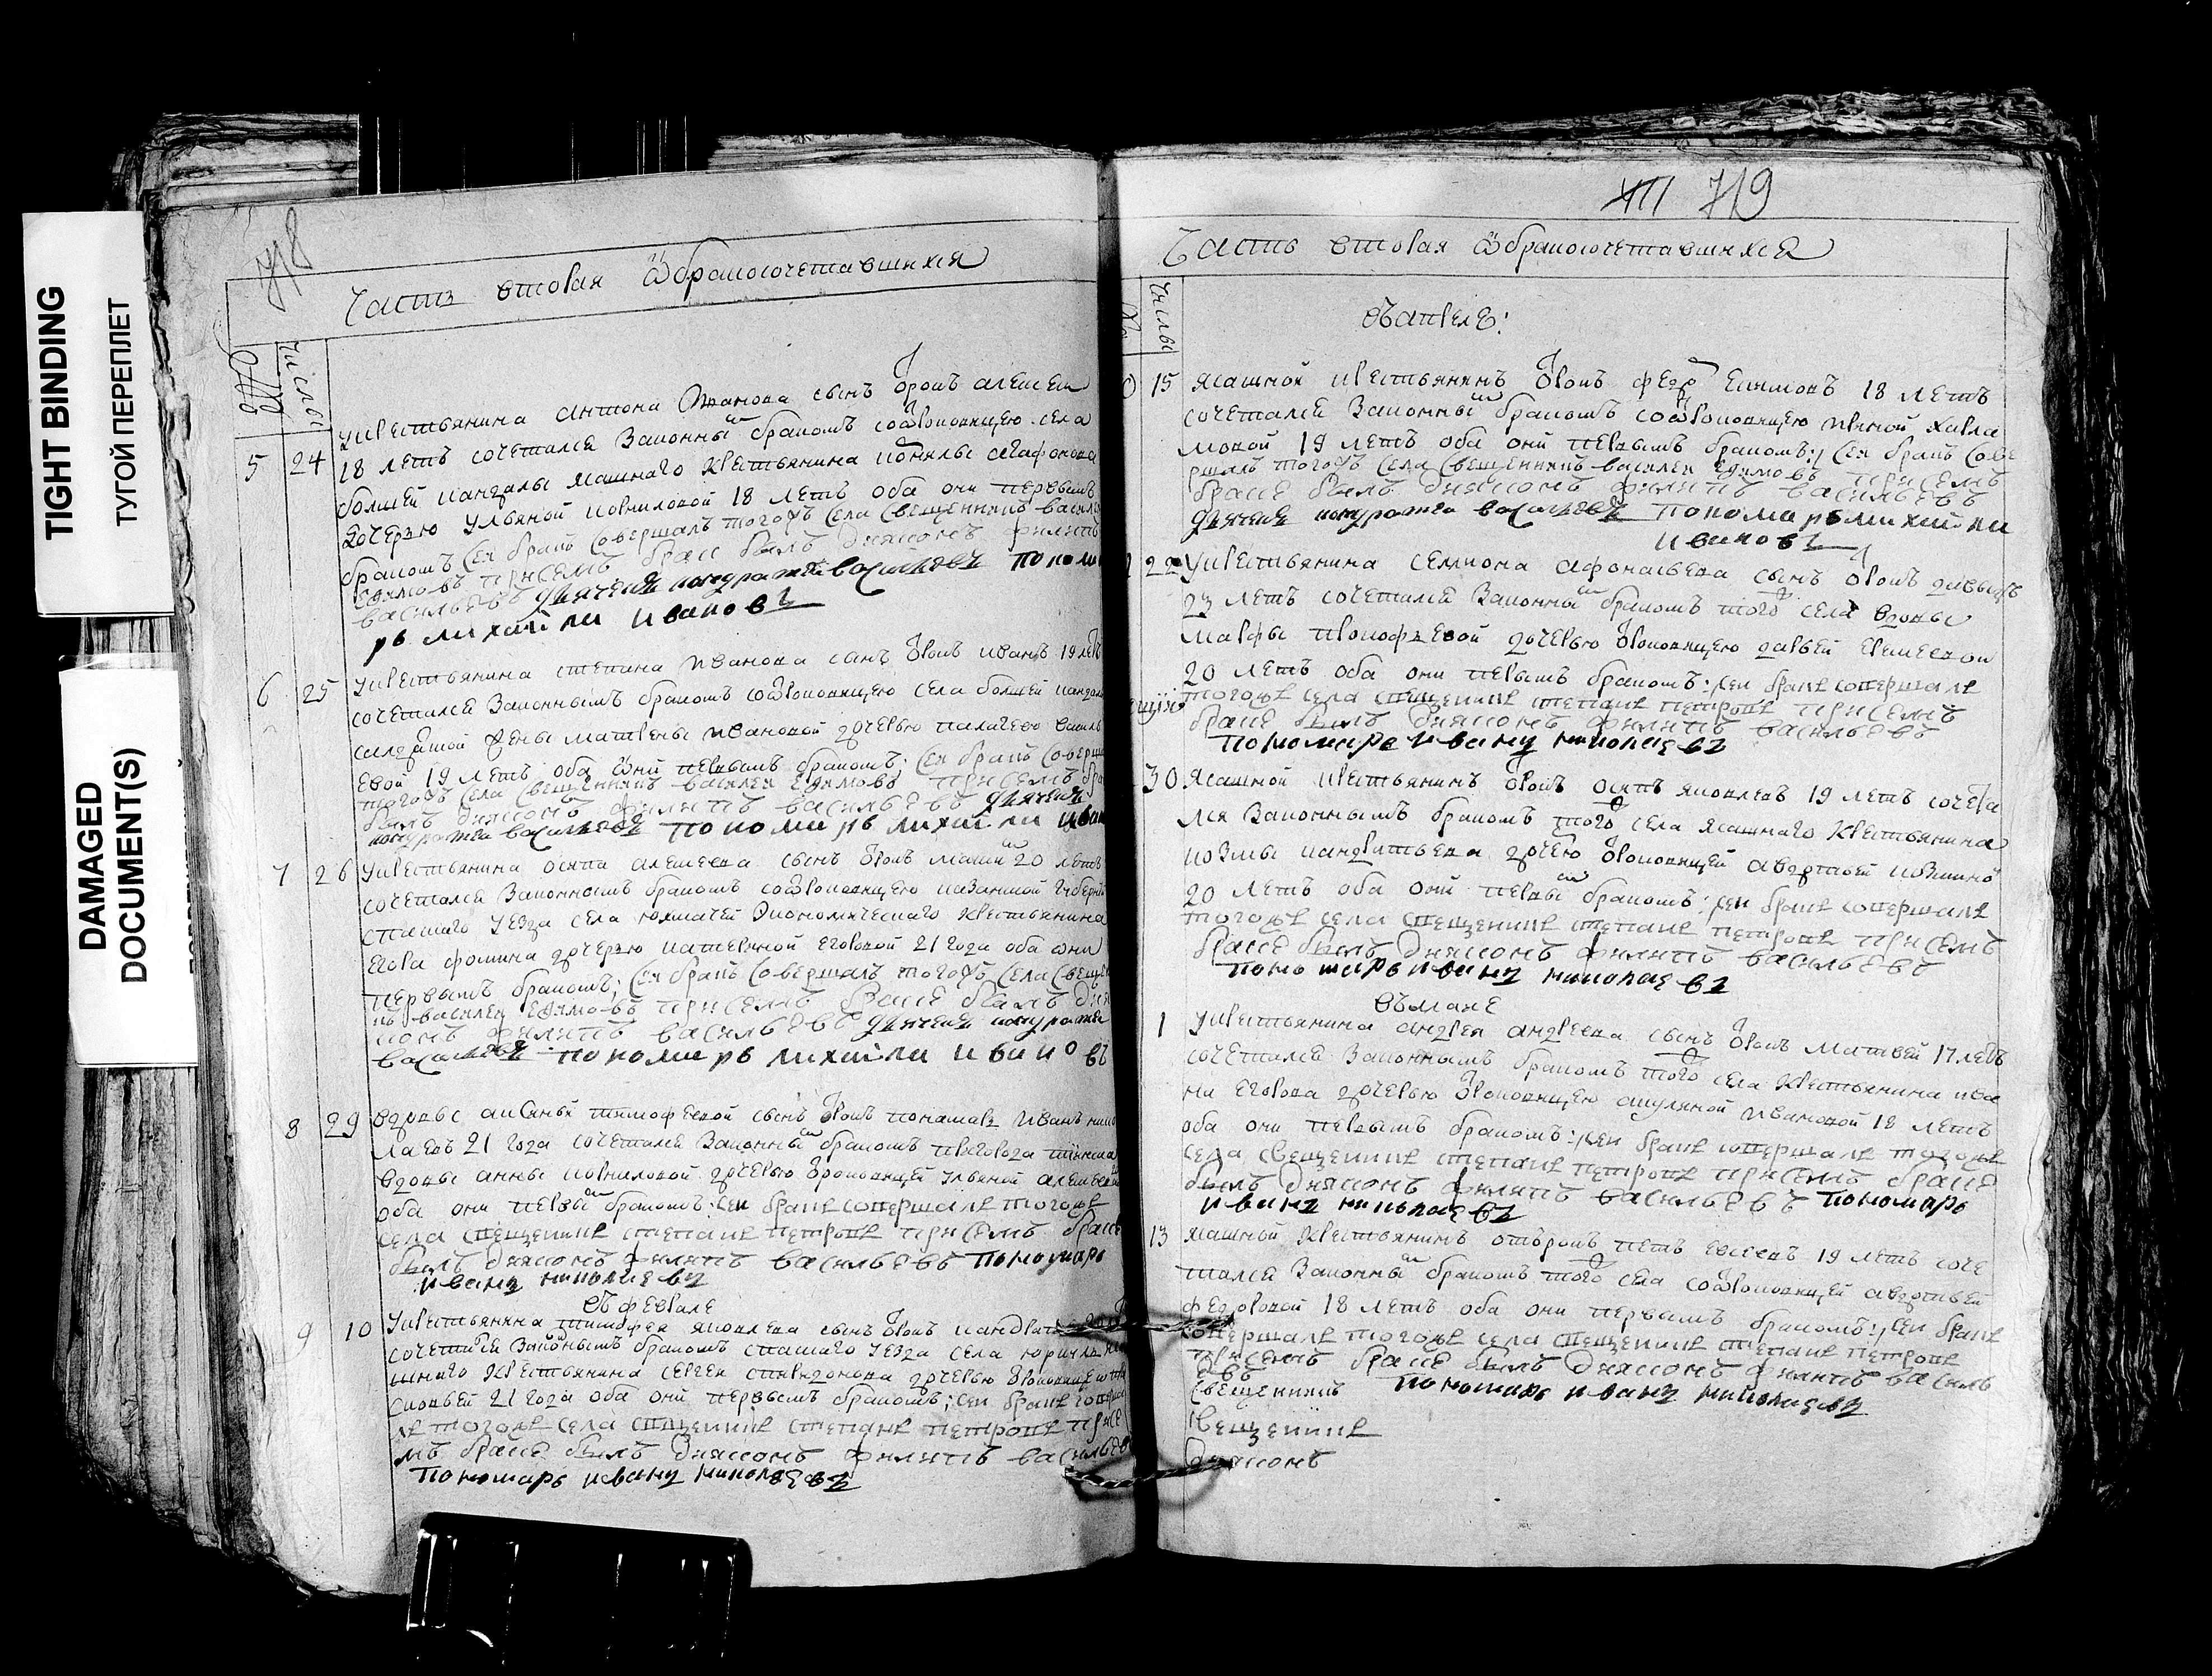 TIGHT BINDING
ТУГОЙ ПЕРЕПЛЕТ
DAMAGED
DOCUMENT(S)
718
Часть вторая о бракосочетавшихся
числы
укрестьянина антона Иванова сынъ отрокъ алексей
5 24 18 летъ сочетался законнымъ бракомъ соотроковицею села
болшей кандалы ясашнаго крестьянина корнилы агафонова
дочерью ульяной корниловой 18 летъ оба они первымъ
бракомъ сей бракъ совершалъ тогожъ села священникъ василей
ефимовъ присемъ браке былъ диякомъ филипъ
васильевъ дьячекъ кондратей васильевъ поном
рь михайли ивановъ
6 25 укрестьянина степана иванова сынъ отрокъ иванъ 19 летъ
сочетался законнымъ бракомъ соотроковицею села болшей кандалы
салдатской жены матрены ивановой дочерью палагеею василь
евой 19 летъ оба они первымъ бракомъ: сей бракъ соверш
тогожъ села священникъ василей ефимовъ присемъ бра
былъ диякомъ филипъ васильевъ дьячекъ
кондратей васильевъ пономарь михайли иван
7 26 укрестьянина осипа алексеева сынъ отрокъ 20 летъ
сочетался законнымъ бракомъ соотроковицею казанской губерни
спаского уезда села юхмачей экономическаго крестьянина
егора фомина дочерью катериной егоровой 21 года оба они
первымъ бракомъ; сей бракъ совершалъ тогожъ села свеще
къ василей ефимовъ присемъ браке былъ дия
комъ филипъ васильевъ дьячекъ кондратей
васильевъ пономарь михайли ивановъ
8 29 вдовы аксиньи тимофеевой сынъ отрокъ иванъ нико
лаевъ 21 года сочетался законнымъ бракомъ
вдовы анны корниловой дочерью отроковицей ульяной алексеевой
оба они первымъ бракомъ: сей бракъ совершалъ тогожъ
села священникъ степанъ петровъ присемъ браке
былъ диякомъ филипъ васильевъ пономарь
иванъ николаевъ
въ феврале
9 10 укрестьянина тимофея яковлева сынъ отрокъ кандрат
сочетался законнымъ бракомъ спаского уезда села
шнаго крестьянина сергея спиридонова дочерью отроковицею
21 года оба они первымъ бракомъ; сей бракъ соверша
лъ тогожъ села священникъ степанъ петровъ присе
мъ браке былъ диякомъ филипъ васильев
пономарь иванъ николаевъ
719
Часть вторая о бракосочетавшихся
числы
въ апреле:
0 15 ясашной крестьянинъ отрокъ федоръ 18 летъ
сочетался законнымъ бракомъ соотроковицею
мовой 19 летъ оба они первымъ бракомъ; сей бракъ сове
ршалъ тогожъ села священникъ василей ефимовъ присемъ
браке былъ диякомъ филипъ васильевъ
дьячекъ кондратей васильевъ пономарь михайли
ивановъ
1 22 укрестьянина семиона афонасьева сынъ отрокъ давыдъ
23 летъ сочетался законнымъ бракомъ того села вдовы
марфы прокофьевой дочерью отроковицею дарьей еремеевой
20 летъ оба они первымъ бракомъ: сей бракъ совершалъ
тогожъ села священникъ степанъ петровъ присемъ
браке былъ диякомъ филипъ васильевъ
пономарь иванъ николаевъ
30 ясашной крестьянинъ отрокъ осипъ яковлевъ 19 летъ сочета
лся законнымъ бракомъ того села ясашнаго крестьянина
козмы кандратьева дочерью отроковицей авдотьей козминой
20 летъ оба они первымъ бракомъ: сей бракъ совершалъ
тогожъ села священникъ степанъ петровъ присемъ
браке былъ диякомъ филипъ васильевъ
пономарь иванъ николаевъ
въ мае
1 укрестьянина андрея андреева сынъ отрокъ матвей 17 летъ
сочетался законнымъ бракомъ того села крестьянина ива
на егорова дочерью отроковицею акулиной ивановой 18 летъ
оба они первымъ бракомъ: сей бракъ совершалъ тогожъ
села священникъ степанъ петровъ присемъ браке
былъ диякомъ филипъ васильевъ пономарь
иванъ николаевъ
13 ясашной крестьянинъ отрокъ петръ евсеевъ 19 летъ соче
тался законнымъ бракомъ того села соотроковицей авдотьей
федоровой 18 летъ оба они первымъ бракомъ: сей бракъ
совершалъ тогожъ села священникъ степанъ петровъ
присемъ браке былъ диякомъ филипъ василь
евъ пономарь иванъ николаевъ
священникъ
священникъ
диякомъ